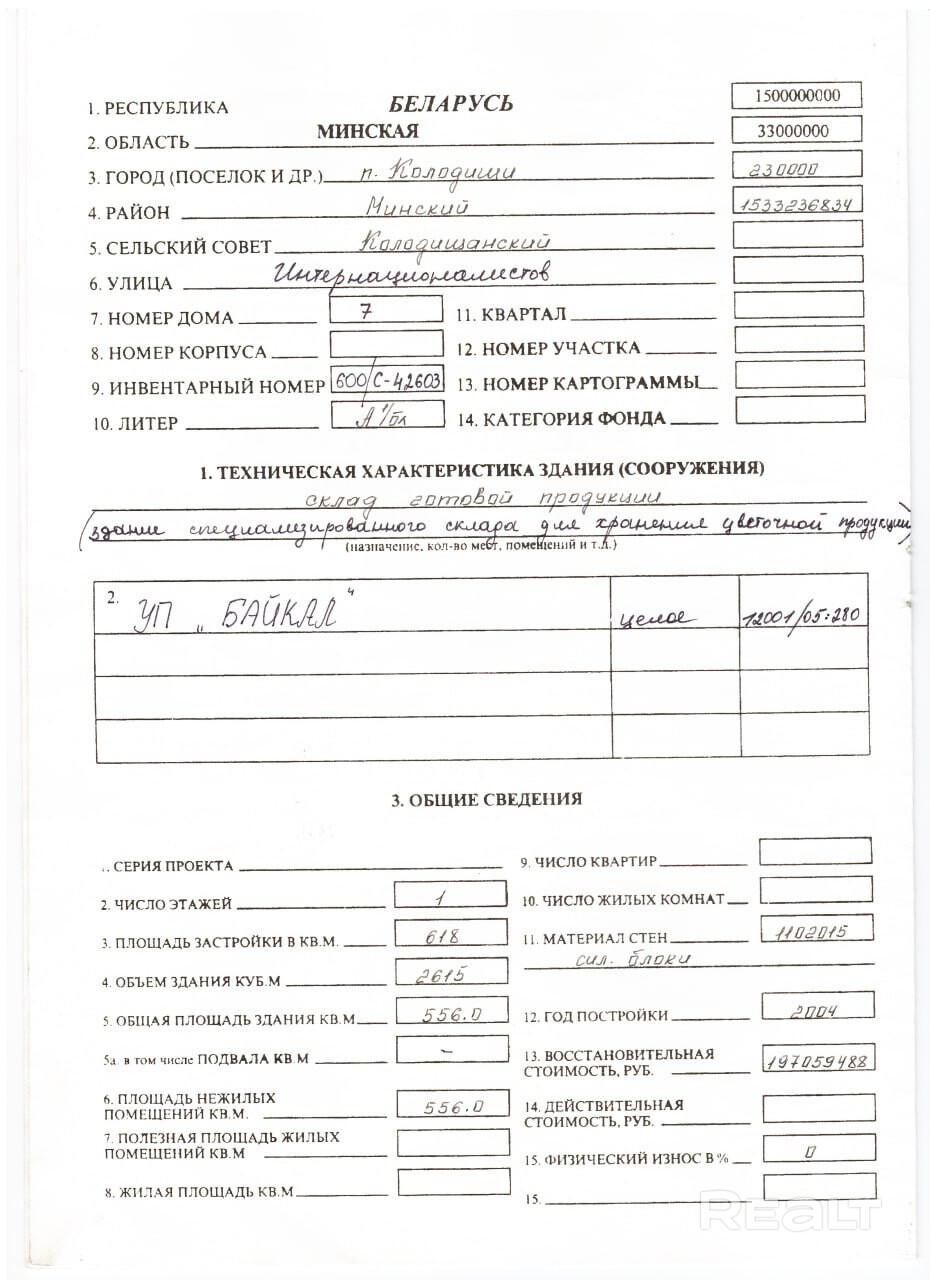 1. РЕСПУБЛИКА БЕЛАРУСЬ 1500000000
2. ОБЛАСТЬ МИНСКАЯ 33000000
3. ГОРОД (ПОСЕЛОК И ДР.) п. Колодищи 230000
4. РАЙОН Минский 1533236834
5. СЕЛЬСКИЙ СОВЕТ Колодищанский
6. УЛИЦА Интернационалистов
7. НОМЕР ДОМА 7 11. КВАРТАЛ
8. НОМЕР КОРПУСА 12. НОМЕР УЧАСТКА
9. ИНВЕНТАРНЫЙ НОМЕР 600/С-42603 13. НОМЕР КАРТОГРАММЫ
10. ЛИТЕР "А"/бл 14. КАТЕГОРИЯ ФОНДА
1. ТЕХНИЧЕСКАЯ ХАРАКТЕРИСТИКА ЗДАНИЯ (СООРУЖЕНИЯ)
склад готовой продукции
(здание специализированного склада для хранения цветочной продукции)
(назначение, кол-во мест, помещений и т.л.)
2. УП „БАЙКАЛ“ целое 12001/05:280
3. ОБЩИЕ СВЕДЕНИЯ
.. СЕРИЯ ПРОЕКТА 9. ЧИСЛО КВАРТИР
2. ЧИСЛО ЭТАЖЕЙ 1 10. ЧИСЛО ЖИЛЫХ КОМНАТ
3. ПЛОЩАДЬ ЗАСТРОЙКИ В КВ.М. 618 11. МАТЕРИАЛ СТЕН 1102015
сил. блоки
4. ОБЪЕМ ЗДАНИЯ КУБ.М 2615
5. ОБЩАЯ ПЛОЩАДЬ ЗДАНИЯ КВ.М 556.0 12. ГОД ПОСТРОЙКИ 2004
5а. в том числе ПОДВАЛА КВ.М – 13. ВОССТАНОВИТЕЛЬНАЯ
СТОИМОСТЬ, РУБ. 197059488
6. ПЛОЩАДЬ НЕЖИЛЫХ
ПОМЕЩЕНИЙ КВ.М. 556.0 14. ДЕЙСТВИТЕЛЬНАЯ
СТОИМОСТЬ, РУБ.
7. ПОЛЕЗНАЯ ПЛОЩАДЬ ЖИЛЫХ
ПОМЕЩЕНИЙ КВ.М 15. ФИЗИЧЕСКИЙ ИЗНОС В % 0
8. ЖИЛАЯ ПЛОЩАДЬ КВ.М 15.
REALT